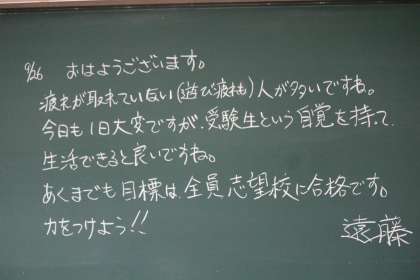 9/26 おはようございます。
疲れが取れていない(遊び疲れも)人が多いですね。
今日も1日大変ですが、受験生という自覚を持って
生活できると良いですね。
あくまでも目標は、全員志望校に合格です。
力をつけよう!!
遠藤